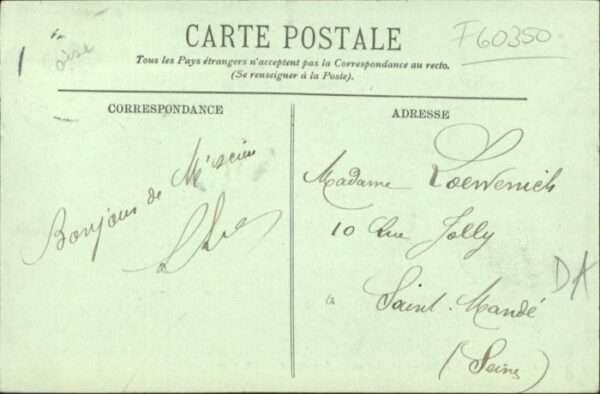 CARTE POSTALE
F60350
Oise
Tous les Pays étrangers n'acceptent pas la Correspondance au recto.
(Se renseigner à la Poste).
CORRESPONDANCE
Bonjour de
ADRESSE
Madame Loewenich
10 Rue Jolly
à Saint-Mandé
(Seine)
DA